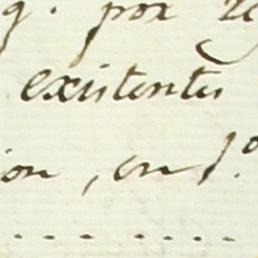 q. por
existentes
ion, en 1.º